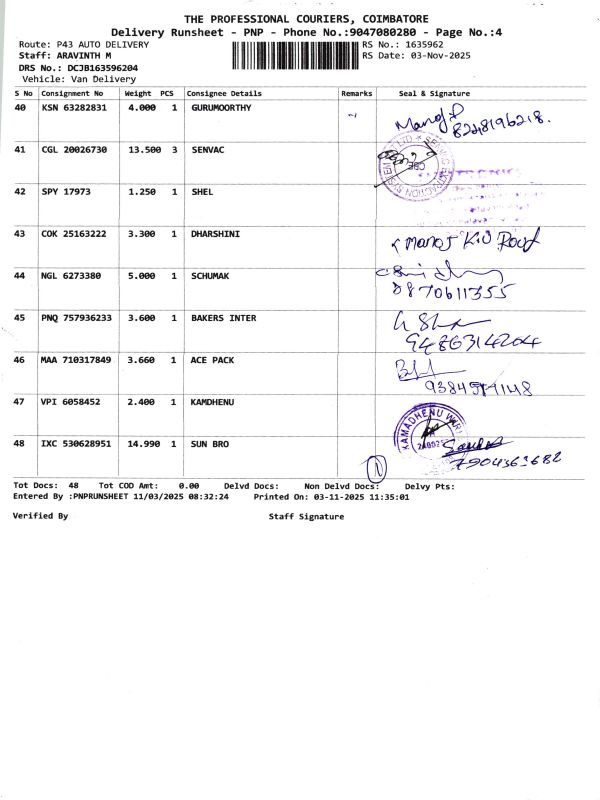 THE PROFESSIONAL COURIERS, COIMBATORE
Delivery Runsheet - PNP - Phone No.:9047080280 - Page No.:4
Route: P43 AUTO DELIVERY RS No.: 1635962
Staff: ARAVINTH M RS Date: 03-Nov-2025
DRS No.: DCJB163596204
Vehicle: Van Delivery
S No Consignment No Weight PCS Consignee Details Remarks Seal & Signature
40 KSN 63282831 4.000 1 GURUMOORTHY
8248196218.
41 CGL 20026730 13.500 3 SENVAC
42 SPY 17973 1.250 1 SHEL
43 COK 25163222 3.300 1 DHARSHINI
44 NGL 6273380 5.000 1 SCHUMAK
9870611355
45 PNQ 757936233 3.600 1 BAKERS INTER
9486314204
46 MAA 710317849 3.660 1 ACE PACK
47 VPI 6058452 2.400 1 KAMDHENU
KAMADHENU
48 IXC 530628951 14.990 1 SUN BRO
7904363682
1
Tot Docs: 48 Tot COD Amt: 0.00 Delvd Docs: Non Delvd Docs: Delvy Pts:
Entered By :PNPRUNSHEET 11/03/2025 08:32:24 Printed On: 03-11-2025 11:35:01
Verified By Staff Signature